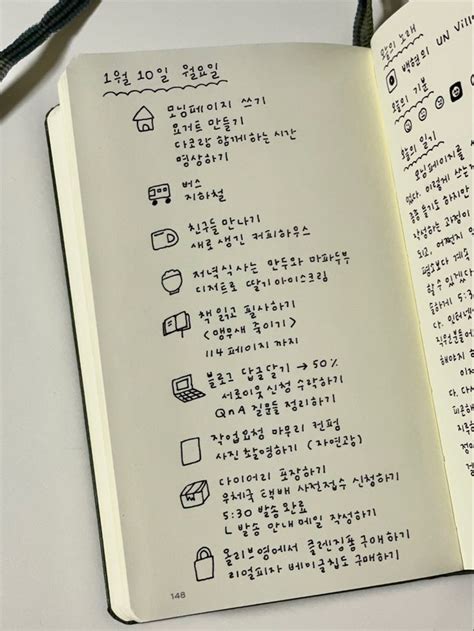 1월 10일 월요일
모닝페이지 쓰기
요거트 만들기
다코랑 함께하는 시간
명상하기
버스
지하철
친구들 만나기
새로 생긴 커피하우스
저녁식사는 만두와 마파두부
디저트로 딸기아이스크림
책 읽고 필사하기
<앵무새 죽이기>
114 페이지 까지
블로그 답글달기 → 50%
서로이웃 신청 수락하기
QnA 질문들 정리하기
작업요청 마무리 컨펌
사진 촬영하기 (자연광)
다이어리 포장하기
우체국 택배 사전접수 신청하기
5:30 발송 완료
L 발송 안내 메일 작성하기
올리브영에서 클렌징폼 구매하기
리얼피자 베이글칩도 구매하기
148
오늘의 노래
백현의 UN Vill
오늘의 기분
오늘의 일기
모닝페이지를
있다. 이렇게 쓰는